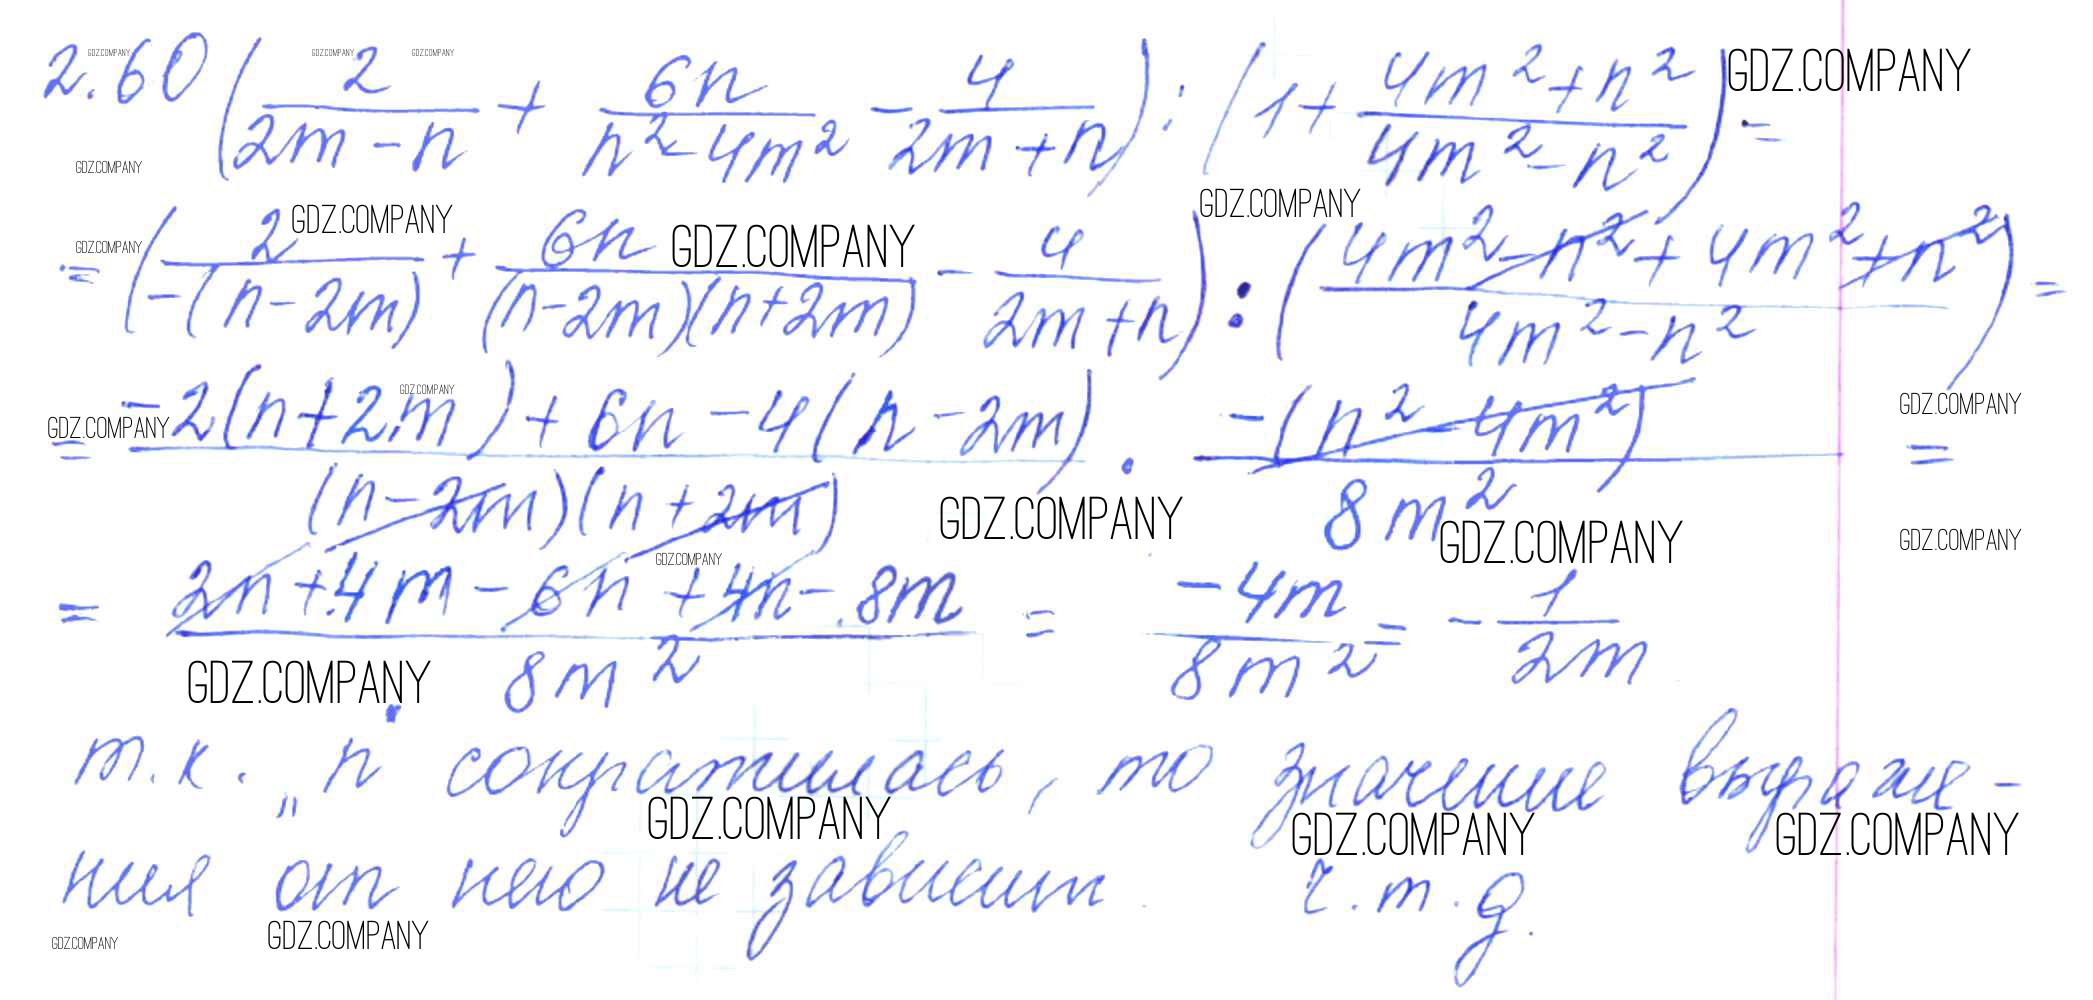 2.60 (2/(2m-n) + 6n/(n²-4m²) - 4/(2m+n)) : (1 + (4m²+n²)/(4m²-n²)) =
= (2/(-(n-2m)) + 6n/((n-2m)(n+2m)) - 4/(2m+n)) : ((4m²-n²+4m²+n²)/(4m²-n²)) =
= (-2(n+2m)+6n-4(n-2m))/((n-2m)(n+2m)) · (-(n²-4m²))/(8m²) =
= (2n+4m-6n+4n-8m)/(8m²) = (-4m)/(8m²) = -1/(2m)
т.к. „n" сократилась, то значение выраже-
ния от него не зависит. ч.т.д.
GDZ.COMPANY GDZ.COMPANY GDZ.COMPANY GDZ.COMPANY
GDZ.COMPANY
GDZ.COMPANY GDZ.COMPANY GDZ.COMPANY GDZ.COMPANY
GDZ.COMPANY GDZ.COMPANY GDZ.COMPANY
GDZ.COMPANY GDZ.COMPANY GDZ.COMPANY GDZ.COMPANY
GDZ.COMPANY
GDZ.COMPANY GDZ.COMPANY GDZ.COMPANY
GDZ.COMPANY GDZ.COMPANY